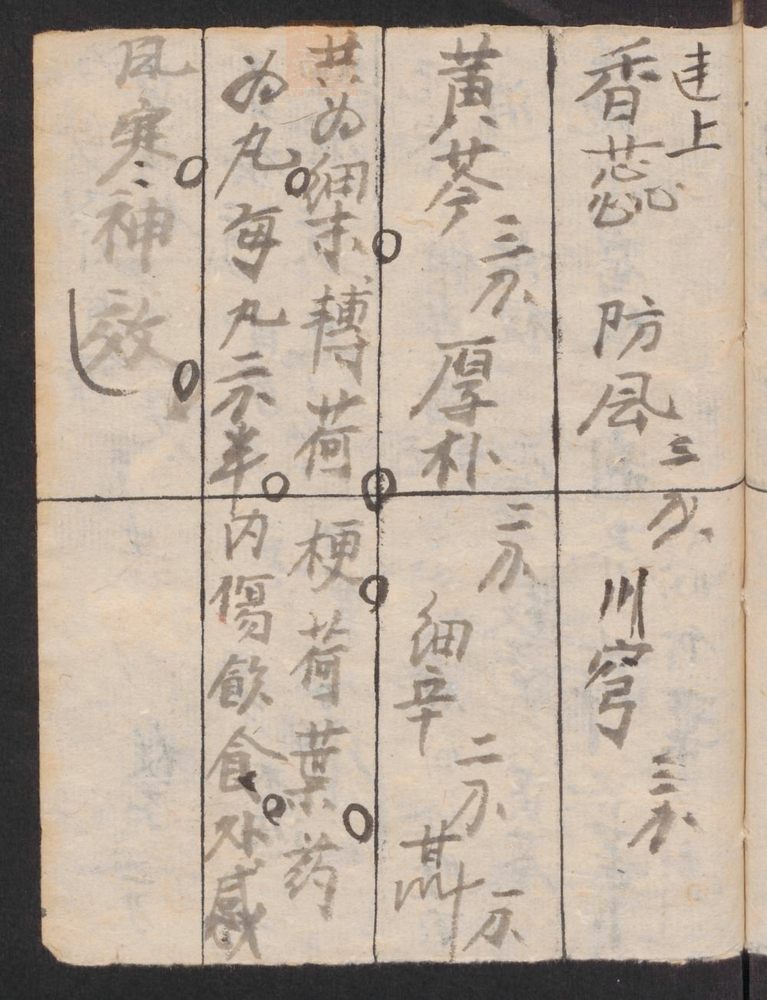 連上
香蕊 防風三分 川穹三分
黃芩三分 厚朴二分 細辛二分 甘草一分
共為細末 薄荷 梗荷葉药
为丸每丸二分半 内傷飲食外感
风寒神效